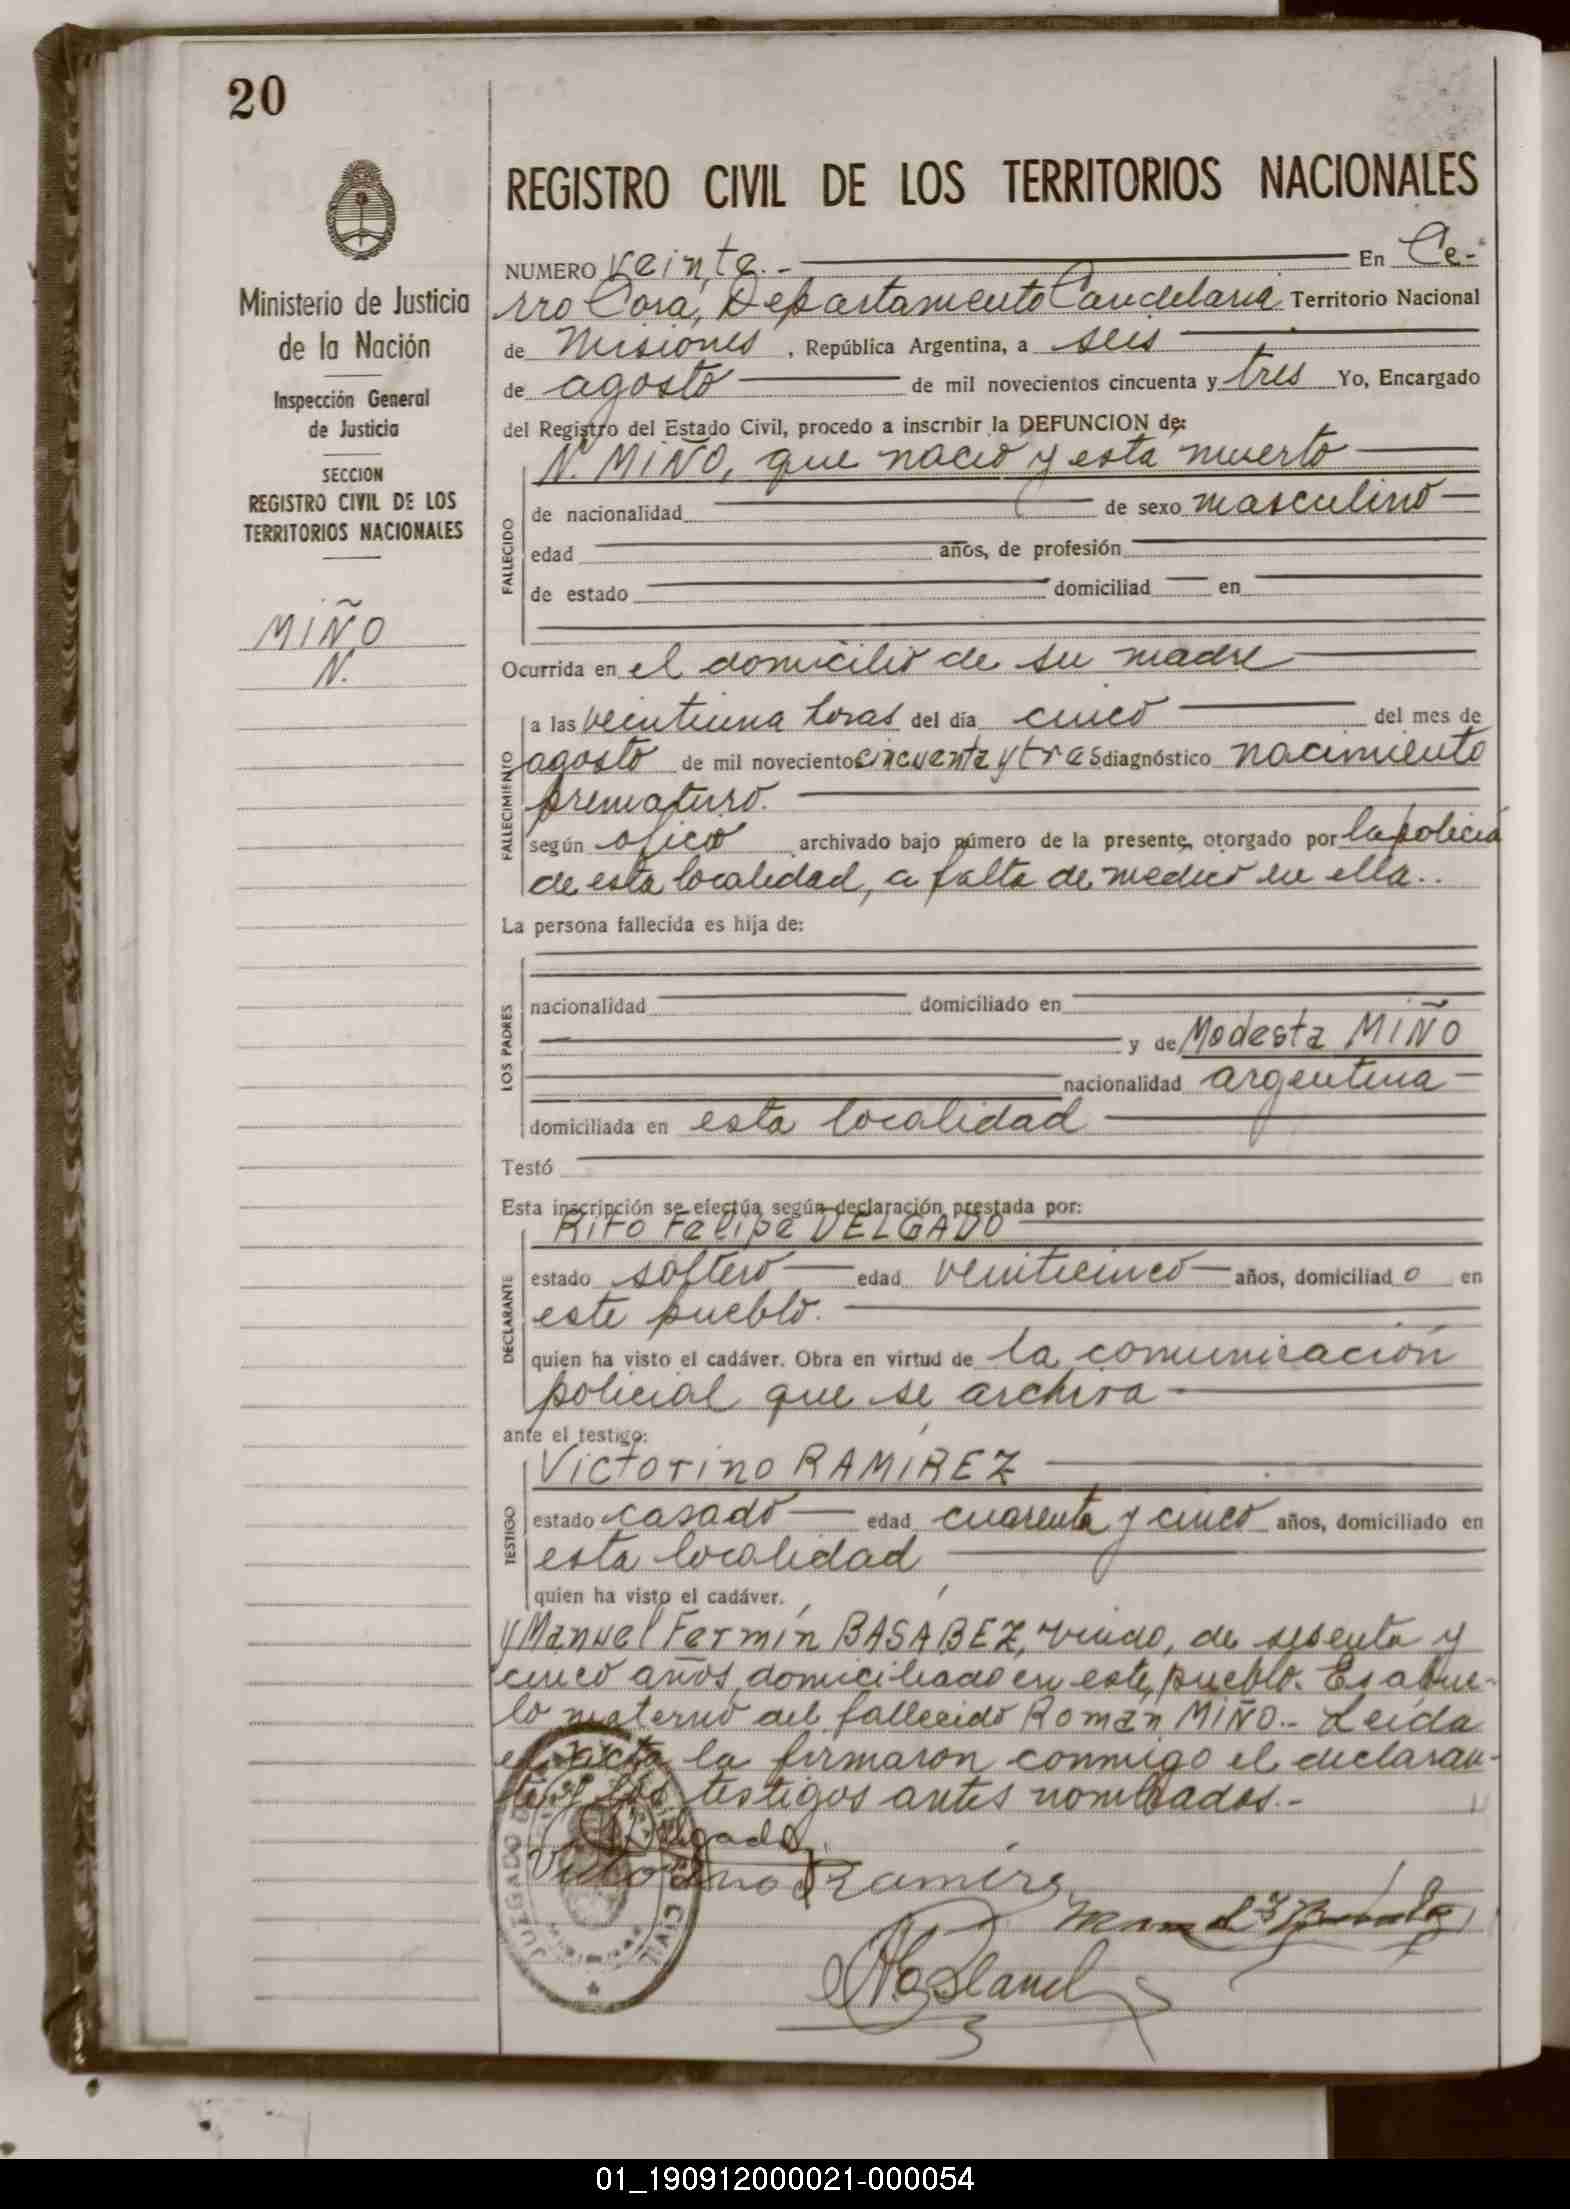 20
Ministerio de Justicia
de la Nación
Inspección General
de Justicia
SECCION
REGISTRO CIVIL DE LOS
TERRITORIOS NACIONALES
MIÑO
N.
REGISTRO CIVIL DE LOS TERRITORIOS NACIONALES
NUMERO Veinte.- En Ce-
rro Corá, Departamento Candelaria Territorio Nacional
de Misiones, República Argentina, a seis
de agosto de mil novecientos cincuenta y tres Yo, Encargado
del Registro del Estado Civil, procedo a inscribir la DEFUNCION de:
N. MIÑO, que nació y está muerto
FALLECIDO
de nacionalidad de sexo masculino
edad años, de profesión
de estado domiciliad en
Ocurrida en el domicilio de su madre
FALLECIMIENTO
a las veintiuna horas del día cinco del mes de
agosto de mil novecientos cincuenta y tres diagnóstico nacimiento
prematuro.
según oficio archivado bajo número de la presente, otorgado por la policía
de esta localidad, a falta de médico en ella..
La persona fallecida es hija de:
LOS PADRES
nacionalidad domiciliado en
y de Modesta MIÑO
nacionalidad argentina
domiciliada en esta localidad
Testó
Esta inscripción se efectúa según declaración prestada por:
Rito Felipe DELGADO
DECLARANTE
estado soltero edad veinticinco años, domiciliad o en
este pueblo.
quien ha visto el cadáver. Obra en virtud de la comunicación
policial que se archiva
ante el testigo:
Victorino RAMÍREZ
TESTIGO
estado casado edad cuarenta y cinco años, domiciliado en
esta localidad
quien ha visto el cadáver.
y Manuel Fermín BASABEZ, viudo, de sesenta y
cinco años, domiciliado en este pueblo. Es abue-
lo materno del fallecido Román MIÑO.- Leída
el acta la firmaron conmigo el declaran-
te y los testigos antes nombrados.-
Delgado
Victorino Ramírez
JUZGADO DE
CIVIL
01_190912000021-000054